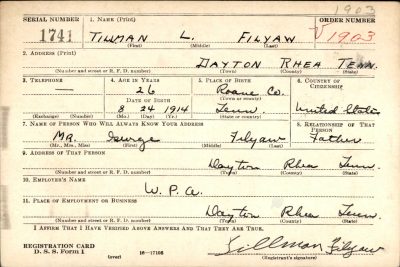 1903
SERIAL NUMBER 1. NAME (Print) ORDER NUMBER
1741 TILMAN L. FILYAW V1903
(First) (Middle) (Last)
2. ADDRESS (Print)
DAYTON RHEA TENN.
(Number and street or R. F. D. number) (Town) (County) (State)
3. TELEPHONE 4. AGE IN YEARS 5. PLACE OF BIRTH 6. COUNTRY OF CITIZENSHIP
— 26 Roane Co.
DATE OF BIRTH (Town or county)
8 24 1914 Tenn. United States
(Exchange) (Number) (Mo.) (Day) (Yr.) (State or country)
7. NAME OF PERSON WHO WILL ALWAYS KNOW YOUR ADDRESS 8. RELATIONSHIP OF THAT PERSON
Mr. George Filyaw Father
(Mr., Mrs., Miss) (First) (Middle) (Last)
9. ADDRESS OF THAT PERSON
Dayton Rhea Tenn
(Number and street or R. F. D. number) (Town) (County) (State)
10. EMPLOYER'S NAME
W. P. A.
11. PLACE OF EMPLOYMENT OR BUSINESS
Dayton Rhea Tenn.
(Number and street or R. F. D. number) (Town) (County) (State)
I AFFIRM THAT I HAVE VERIFIED ABOVE ANSWERS AND THAT THEY ARE TRUE.
REGISTRATION CARD
D. S. S. Form 1 (over) 16—17105 Tillman Filyaw
(Registrant's signature)